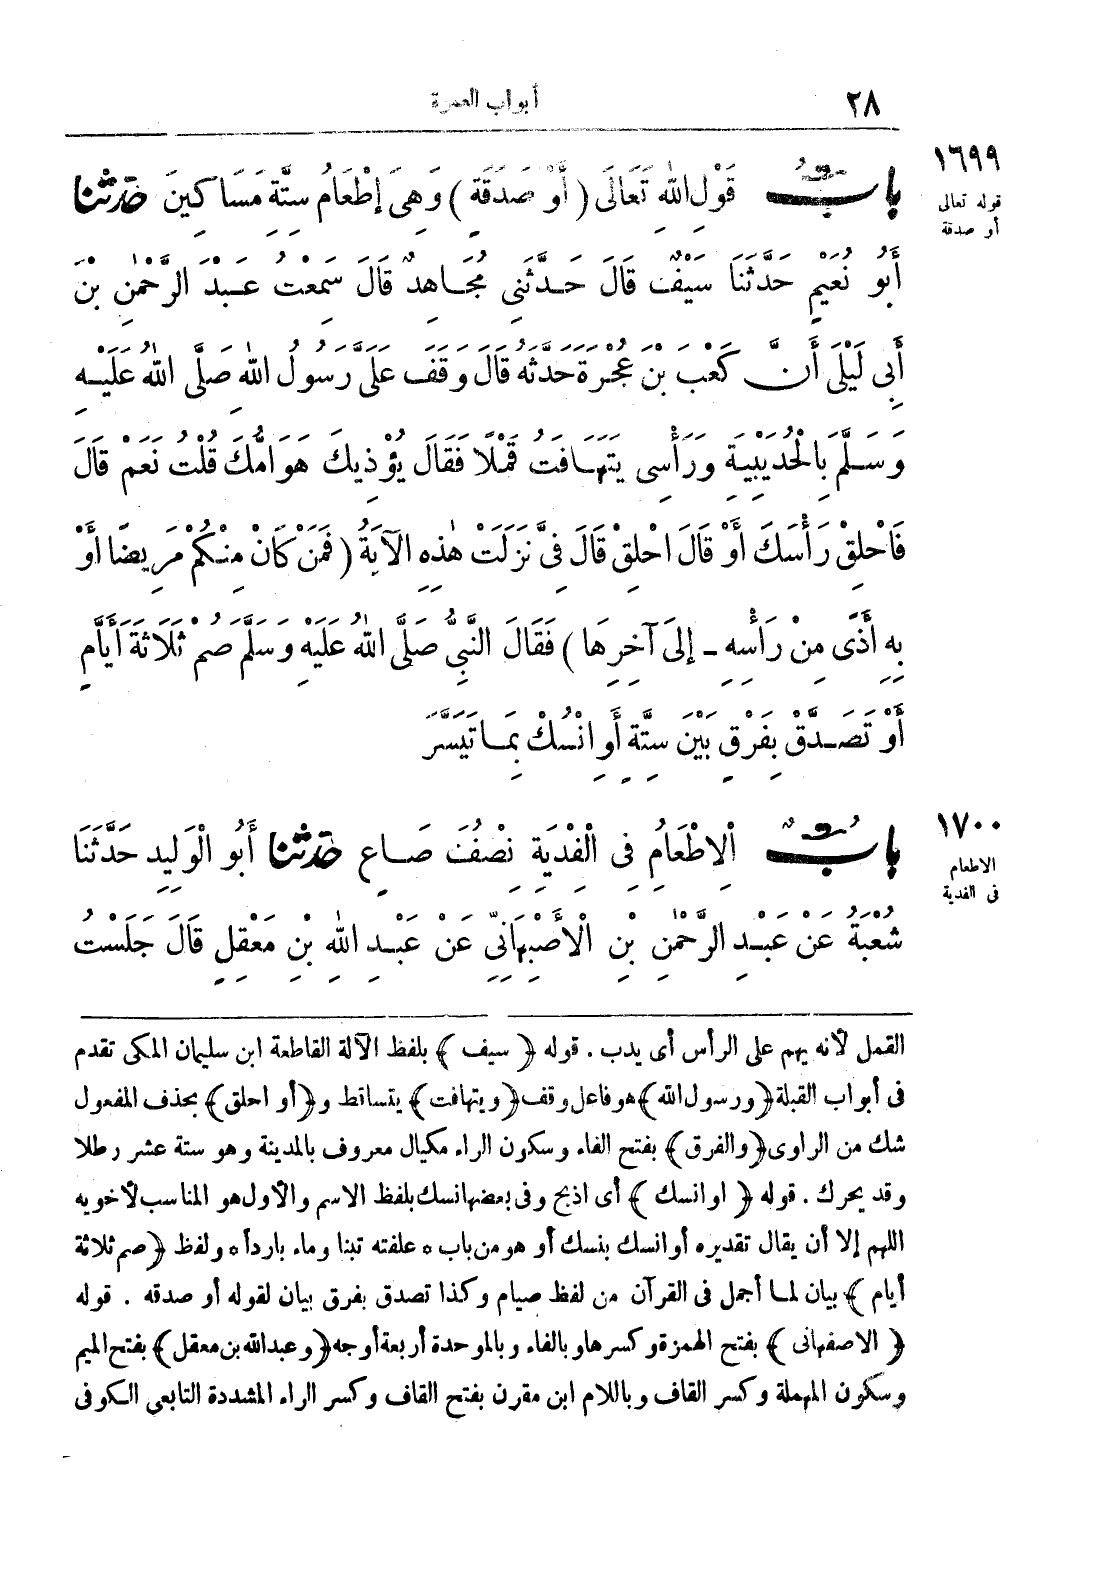 ٢٨
أبواب العمرة
١٦٩٩
قوله تعالى
أو صدقة
بابُ قَوْلِ اللهِ تَعَالَى ( أَوْ صَدَقَةٍ ) وَهِيَ إِطْعَامُ سِتَّةِ مَسَاكِينَ حَدَّثَنَا
أَبُو نُعَيْمٍ حَدَّثَنَا سَيْفٌ قَالَ حَدَّثَنِي مُجَاهِدٌ قَالَ سَمِعْتُ عَبْدَ الرَّحْمٰنِ بْنَ
أَبِي لَيْلَى أَنَّ كَعْبَ بْنَ عُجْرَةَ حَدَّثَهُ قَالَ وَقَفَ عَلَيَّ رَسُولُ اللهِ صَلَّى اللهُ عَلَيْهِ
وَسَلَّمَ بِالْحُدَيْبِيَةِ وَرَأْسِي يَتَهَافَتُ قَمْلًا فَقَالَ يُؤْذِيكَ هَوَامُّكَ قُلْتُ نَعَمْ قَالَ
فَاحْلِقْ رَأْسَكَ أَوْ قَالَ احْلِقْ قَالَ فِيَّ نَزَلَتْ هٰذِهِ الْآيَةُ ( فَمَنْ كَانَ مِنْكُمْ مَرِيضًا أَوْ
بِهِ أَذًى مِنْ رَأْسِهِ ـ إِلَى آخِرِهَا ) فَقَالَ النَّبِيُّ صَلَّى اللهُ عَلَيْهِ وَسَلَّمَ صُمْ ثَلَاثَةَ أَيَّامٍ
أَوْ تَصَدَّقْ بِفَرْقٍ بَيْنَ سِتَّةٍ أَوِ انْسُكْ بِمَا تَيَسَّرَ
١٧٠٠
الاطعام
فى الفدية
بابٌ الْإِطْعَامُ فِي الْفِدْيَةِ نِصْفُ صَاعٍ حَدَّثَنَا أَبُو الْوَلِيدِ حَدَّثَنَا
شُعْبَةُ عَنْ عَبْدِ الرَّحْمٰنِ بْنِ الْأَصْبَهَانِيِّ عَنْ عَبْدِ اللهِ بْنِ مَعْقِلٍ قَالَ جَلَسْتُ
القمل لأنه يهم على الرأس أى يدب . قوله ﴿ سيف ﴾ بلفظ الآلة القاطعة ابن سليمان المكى تقدم
فى أبواب القبلة ﴿ ورسول الله ﴾ هو فاعل وقف ﴿ ويتهافت ﴾ يتساقط و ﴿ أو احلق ﴾ بحذف المفعول
شك من الراوى ﴿ والفرق ﴾ بفتح الفاء وسكون الراء مكيال معروف بالمدينة وهو ستة عشر رطلا
وقد يحرك . قوله ﴿ او انسك ﴾ أى اذبح وفى بعضها نسك بلفظ الاسم والأول هو المناسب لأخويه
اللهم إلا أن يقال تقديره أو انسك بنسك أو هو من باب ٥ علفته تبنا وماء باردا ٥ ولفظ ﴿ صم ثلاثة
أيام ﴾ بيان لما أجمل فى القرآن من لفظ صيام وكذا تصدق بفرق بيان لقوله أو صدقه . قوله
﴿ الاصفهانى ﴾ بفتح الهمزة وكسرها وبالفاء وبالموحدة أربعة أوجه ﴿ وعبد الله بن معقل ﴾ بفتح الميم
وسكون المهملة وكسر القاف وباللام ابن مقرن بفتح القاف وكسر الراء المشددة التابعى الكوفى